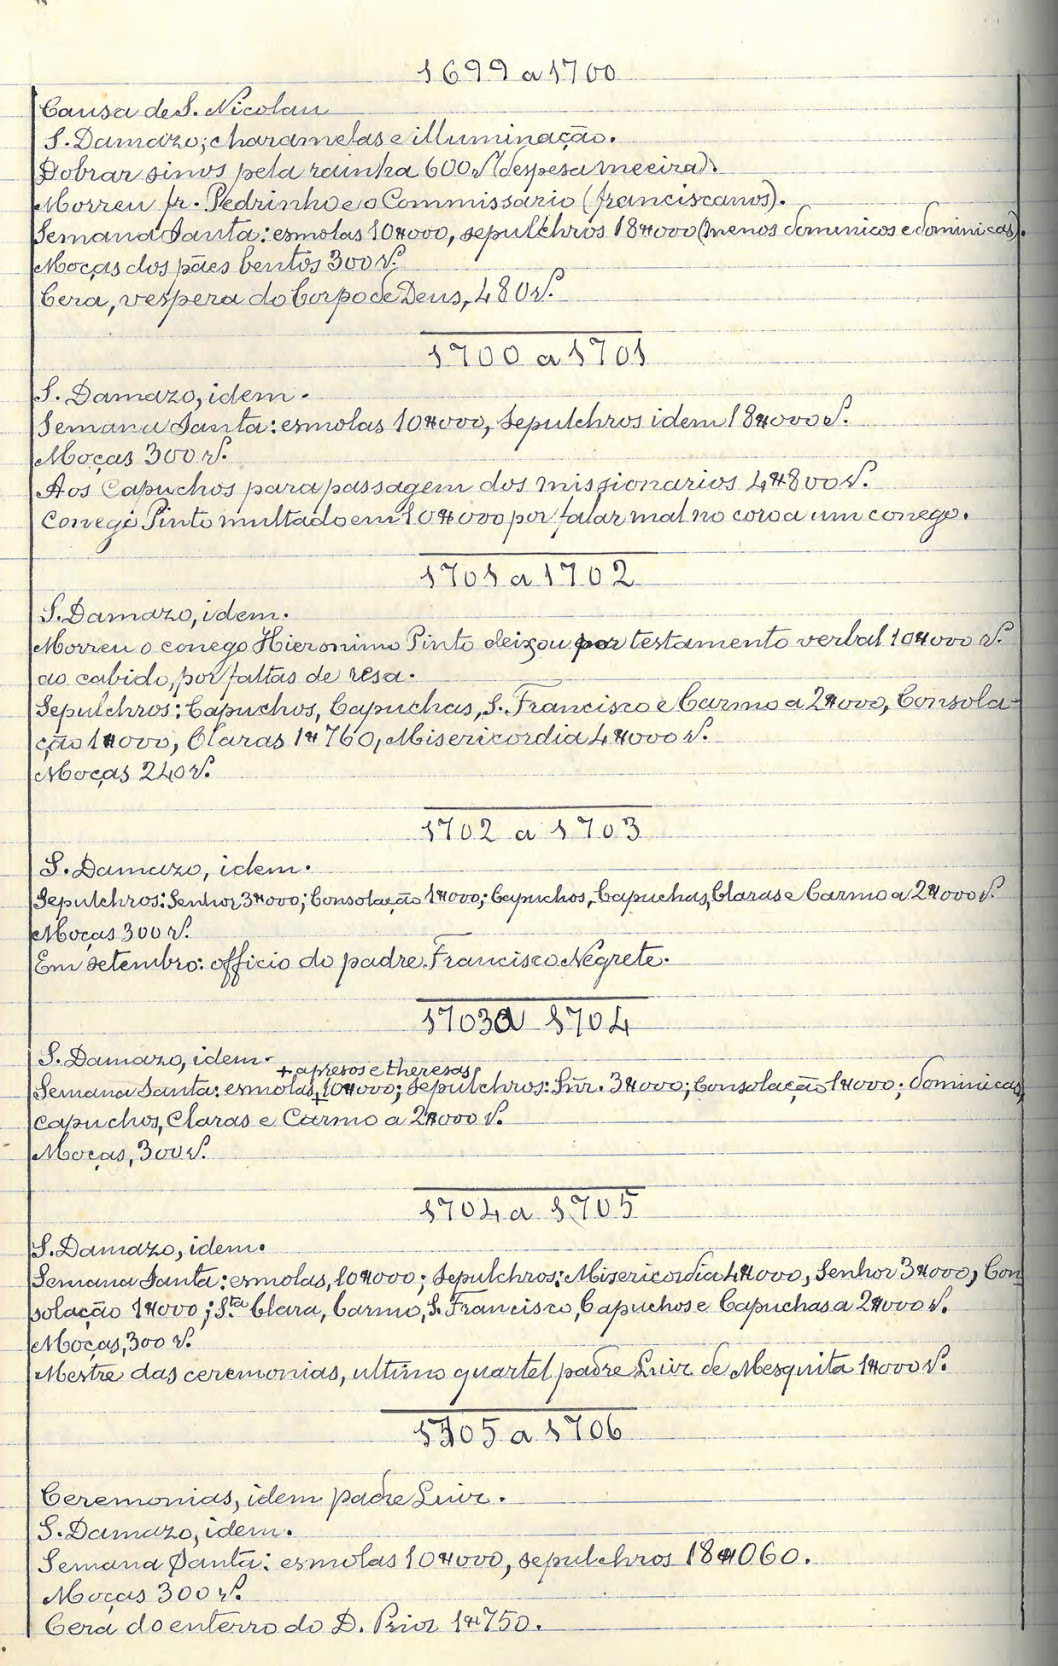 1699 a 1700
Causa de S. Nicolau
S. Damazo; charamelas e illuminação.
Dobrar sinos pela rainha 600 rs. (despesa meeira).
Morreu fr. Pedrinho e o Commissario (franciscanos).
Semana Santa: esmolas 10$000, sepulchros 18$000 (menos dominicos e dominicas).
Moças dos pães bentos 300 rs.
Cera, vespera do Corpo de Deus, 480 rs.
1700 a 1701
S. Damazo, idem.
Semana Santa: esmolas 10$000, sepulchros idem 18$000 rs.
Moças 300 rs.
Aos Capuchos para passagem dos missionarios 4$800 rs.
Conego Pinto multado em 10$000 por falar mal no coro a um conego.
1701 a 1702
S. Damazo, idem.
Morreu o conego Hieronimo Pinto deixou por testamento verbal 10$000 rs.
ao cabido, por faltas de resa.
Sepulchros: Capuchos, Capuchas, S. Francisco e Carmo a 2$000, Consola-
ção 1$000, Claras 1$760, Misericordia 4$000 rs.
Moças 240 rs.
1702 a 1703
S. Damazo, idem.
Sepulchros: Senhor 3$000; Consolação 1$000; Capuchos, Capuchas, Claras e Carmo a 2$000 rs.
Moças 300 rs.
Em setembro: officio do padre Francisco Negrete.
1703 a 1704
S. Damazo, idem.
+ a presos e theresas
Semana Santa: esmolas,+10$000; sepulchros: Snr. 3$000; Consolação 1$000; dominicas,
capuchos, Claras e Carmo a 2$000 rs.
Moças, 300 rs.
1704 a 1705
S. Damazo, idem.
Semana Santa: esmolas, 10$000; sepulchros: Misericordia 4$000, Senhor 3$000, Con
solação 1$000; Sta Clara, Carmo, S. Francisco, Capuchos e Capuchas a 2$000 rs.
Moças, 300 rs.
Mestre das ceremonias, ultimo quartel padre Luiz de Mesquita 1$000 rs.
1705 a 1706
Ceremonias, idem padre Luiz.
S. Damazo, idem.
Semana Santa: esmolas 10$000, sepulchros 18$060.
Moças 300 rs.
Cera do enterro do D. Prior 1$750.